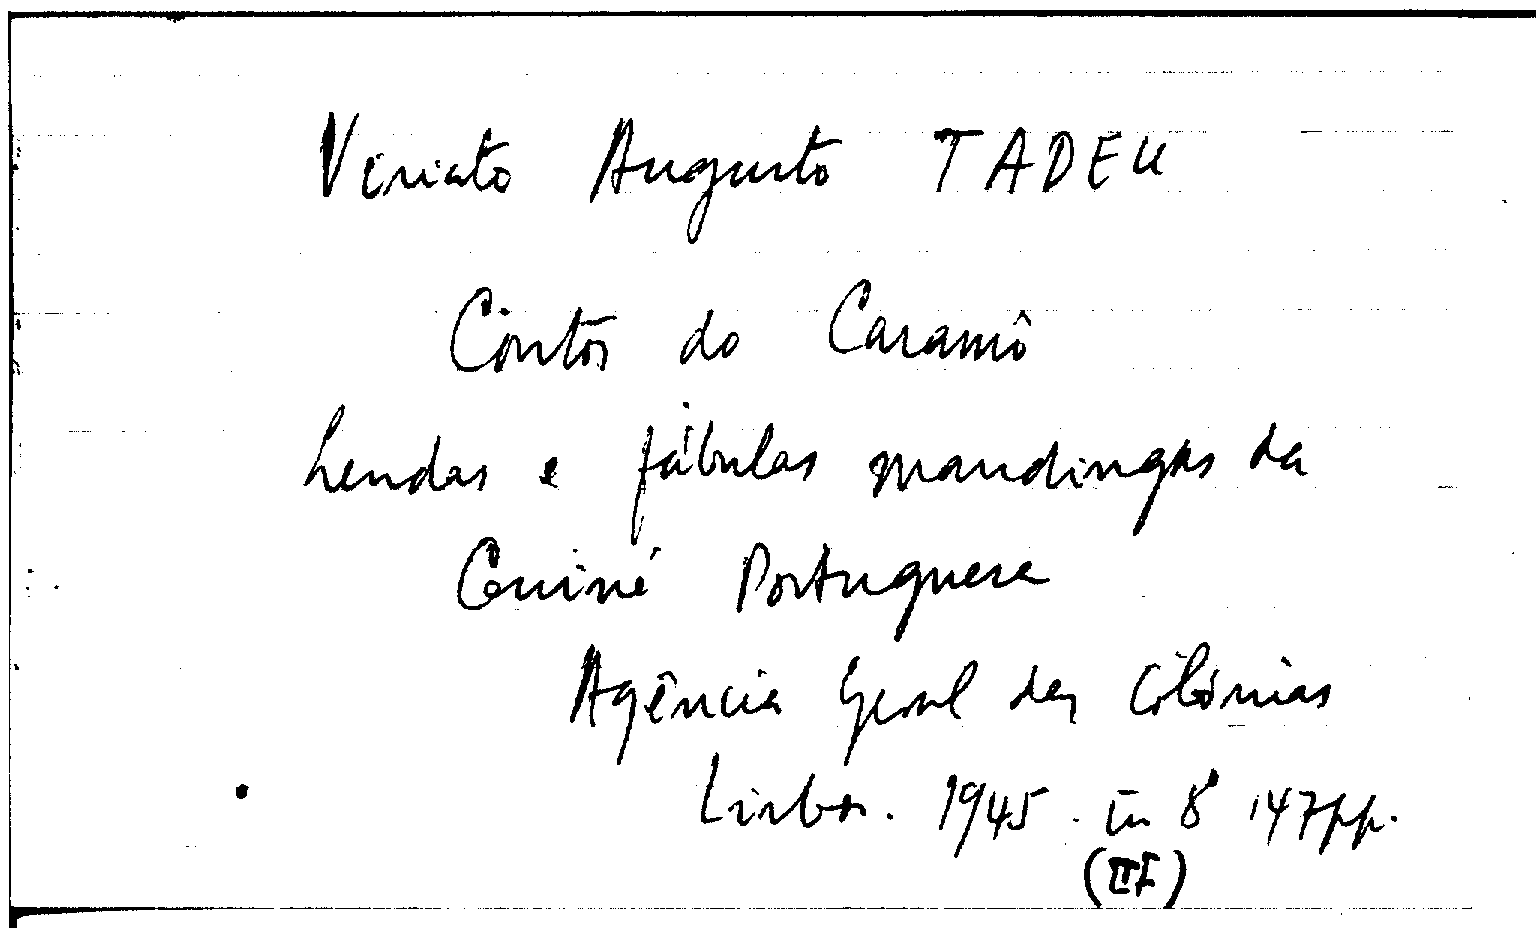 Viriato Augusto TADEU
Contos do Caramô
Lendas e fábulas mandingas da
Guiné Portuguesa
Agência Geral das Colónias
Lisboa. 1945. in 8° 147 pp.